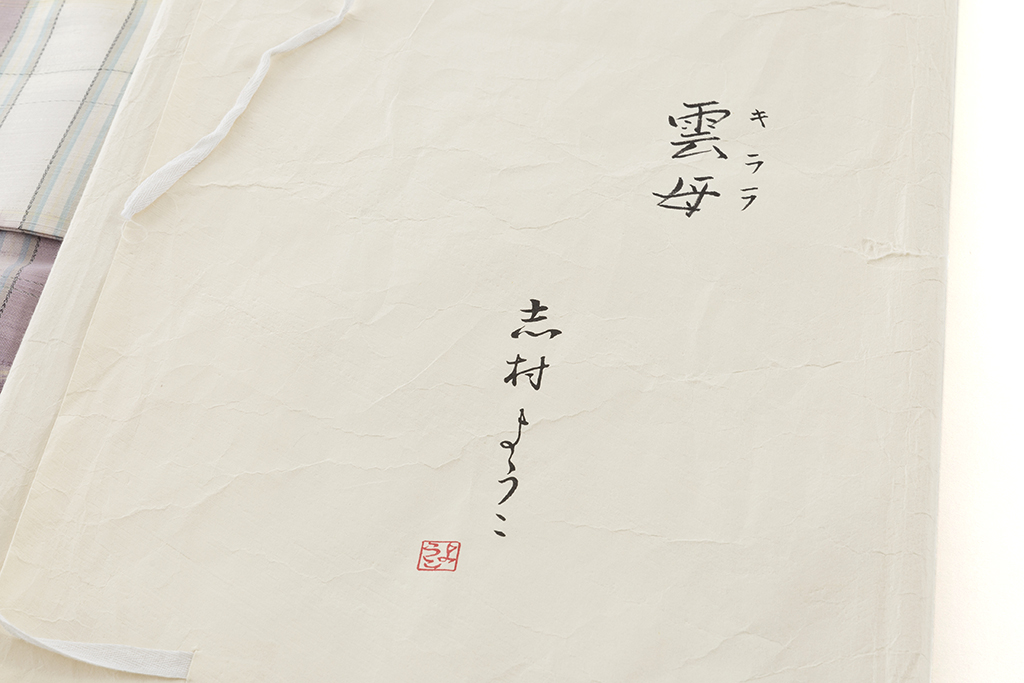 雲母
キララ
志村ようこ
ようこ